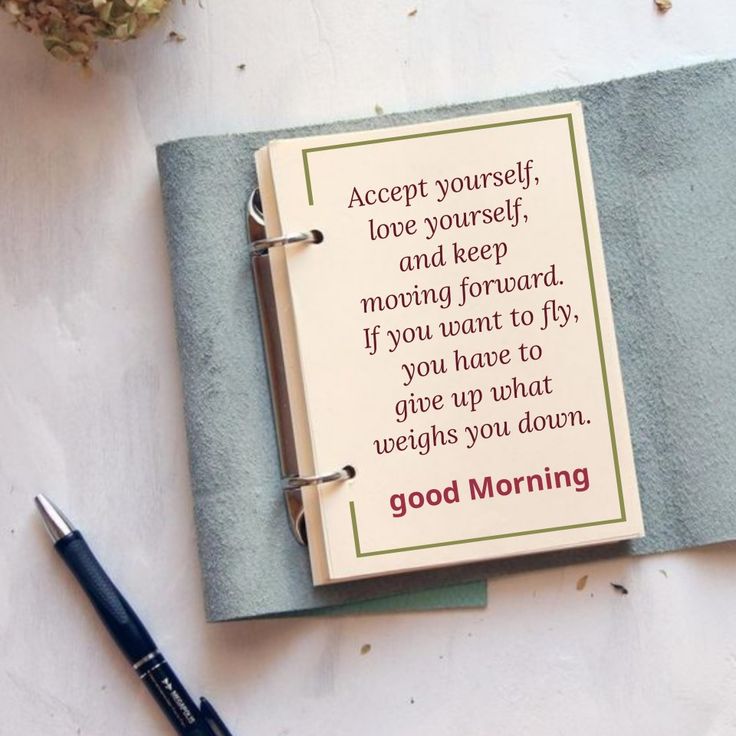 Accept yourself,
love yourself,
and keep
moving forward.
If you want to fly,
you have to
give up what
weighs you down.
good Morning
MEGAPOLIS